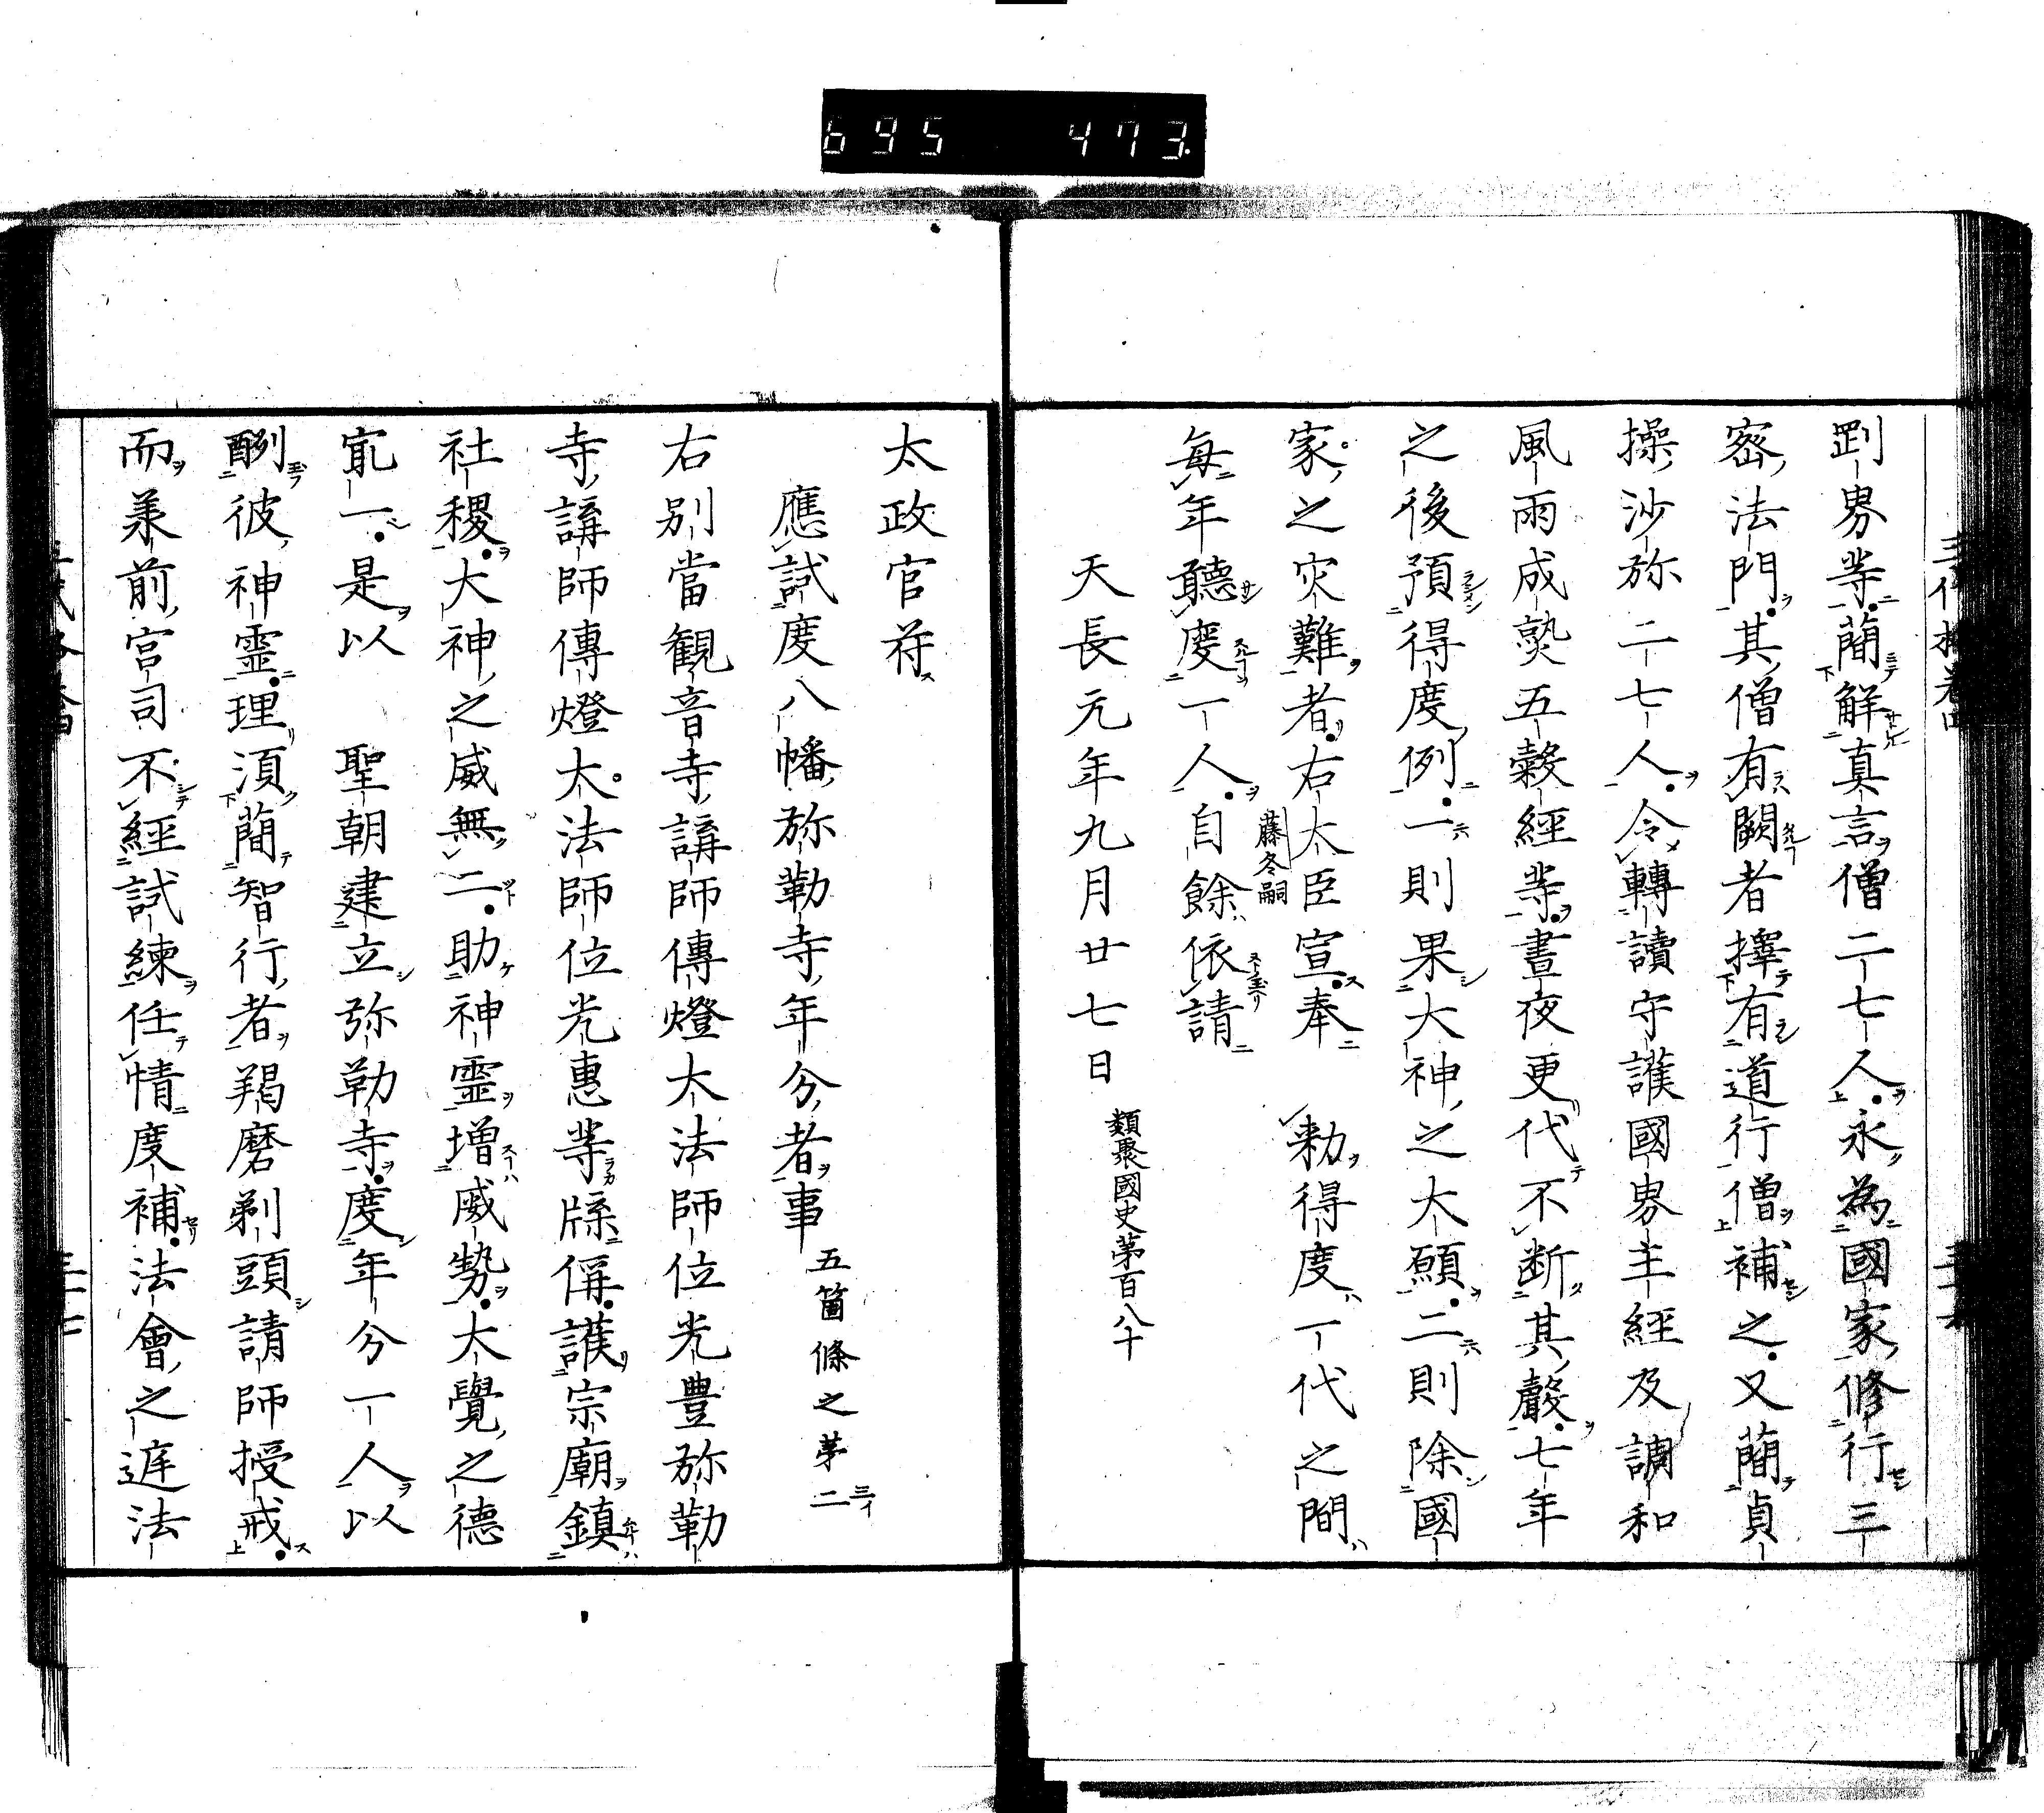 695 473
罸界等蕳解真言僧二七人永為國家修行三
宻法門其僧有闕者擇有道行僧補之又蕳貞
操沙弥二七人令轉讀守護國界主經及調和
風雨成熟五穀經等晝夜更代不断其聲七年
之後預得度例一則果大神之大願二則除國
家之灾難者右大臣宣奉　勅得度一代之間
藤冬嗣
每年聽度一人自餘依請
天長元年九月廿七日 類聚國史苐百八十
太政官符
應試度八幡弥勒寺年分者事 五箇條之苐二 三イ
右別當観音寺講師傳燈大法師位光豊弥勒
寺講師傳燈大法師位光惠等牒偁護宗廟鎮
社稷大神之威無二助神霊增威勢大覺之德
㝡一是以　聖朝建立弥勒寺度年分一人以
酬彼神霊理須蕳智行者羯磨剃頭請師授戒
而羕前宮司不經試練任情度補法會之遅法